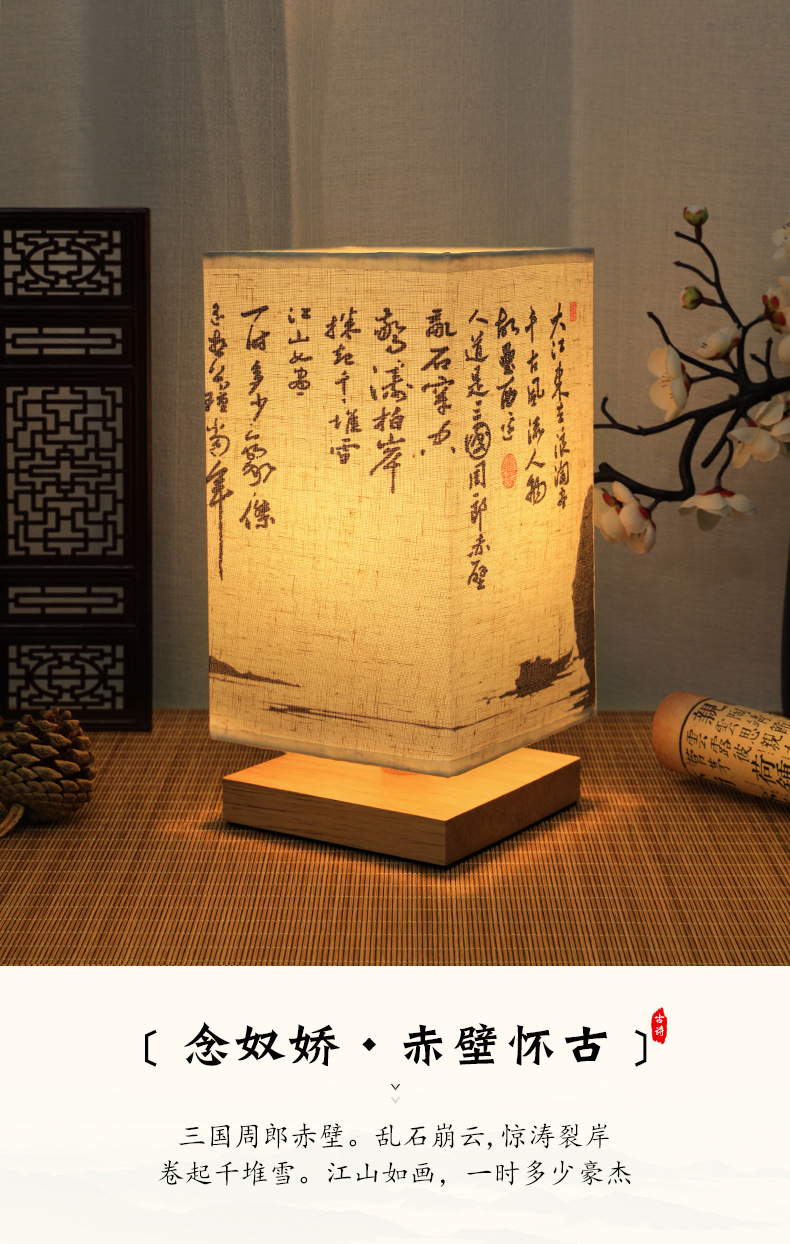 大江東去浪淘尽
千古風流人物
故壘西邊
人道是三國周郎赤壁
亂石穿空
驚濤拍岸
捲起千堆雪
江山如畫
一時多少豪傑
遙想公瑾當年
〔 念奴娇·赤壁怀古 〕
古诗
三国周郎赤壁。乱石崩云,惊涛裂岸
卷起千堆雪。江山如画，一时多少豪杰